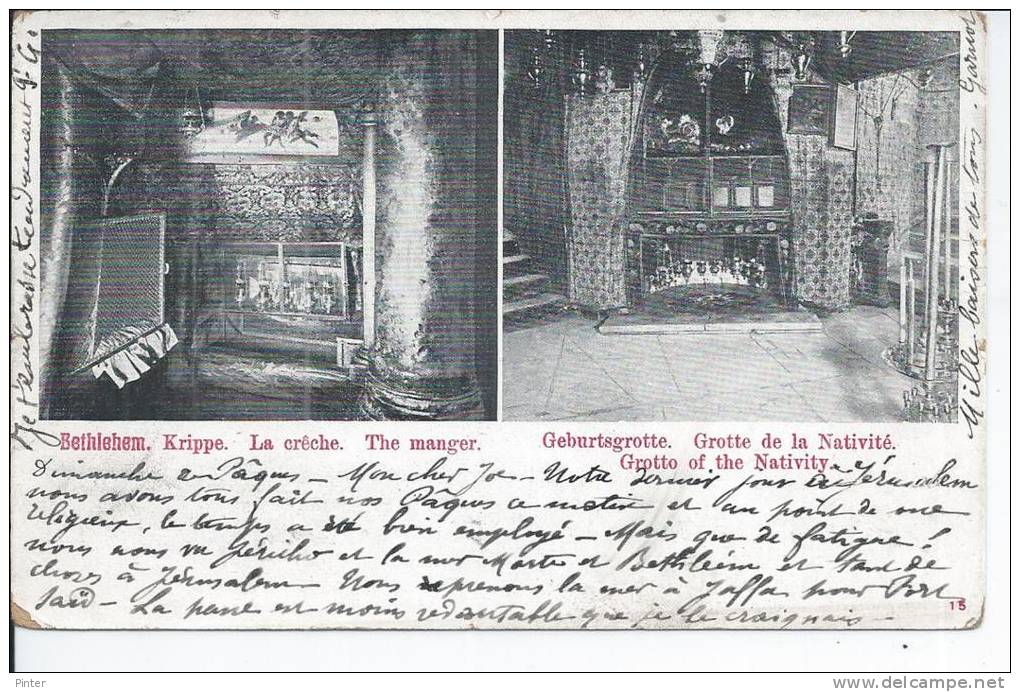 Bethlehem. Krippe. La crêche. The manger.
Geburtsgrotte. Grotte de la Nativité.
Grotto of the Nativity.
Dimanche de Pâques - Mon cher Joe - Notre dernier jour à Jérusalem
nous avons tous fait nos Pâques ce matin et au point de vue
religieux, le temps a été bien employé - Mais que de fatigue !
nous avons vu Jéricho et la mer Morte et Bethléem et tant de
choses à Jérusalem - Nous reprenons la mer à Jaffa pour Port
Saïd - La panne est moins redoutable que je le craignais -
15
Je t'embrasse tendrement
Mille baisers de tous.
Pinter
http://www.delcampe.net